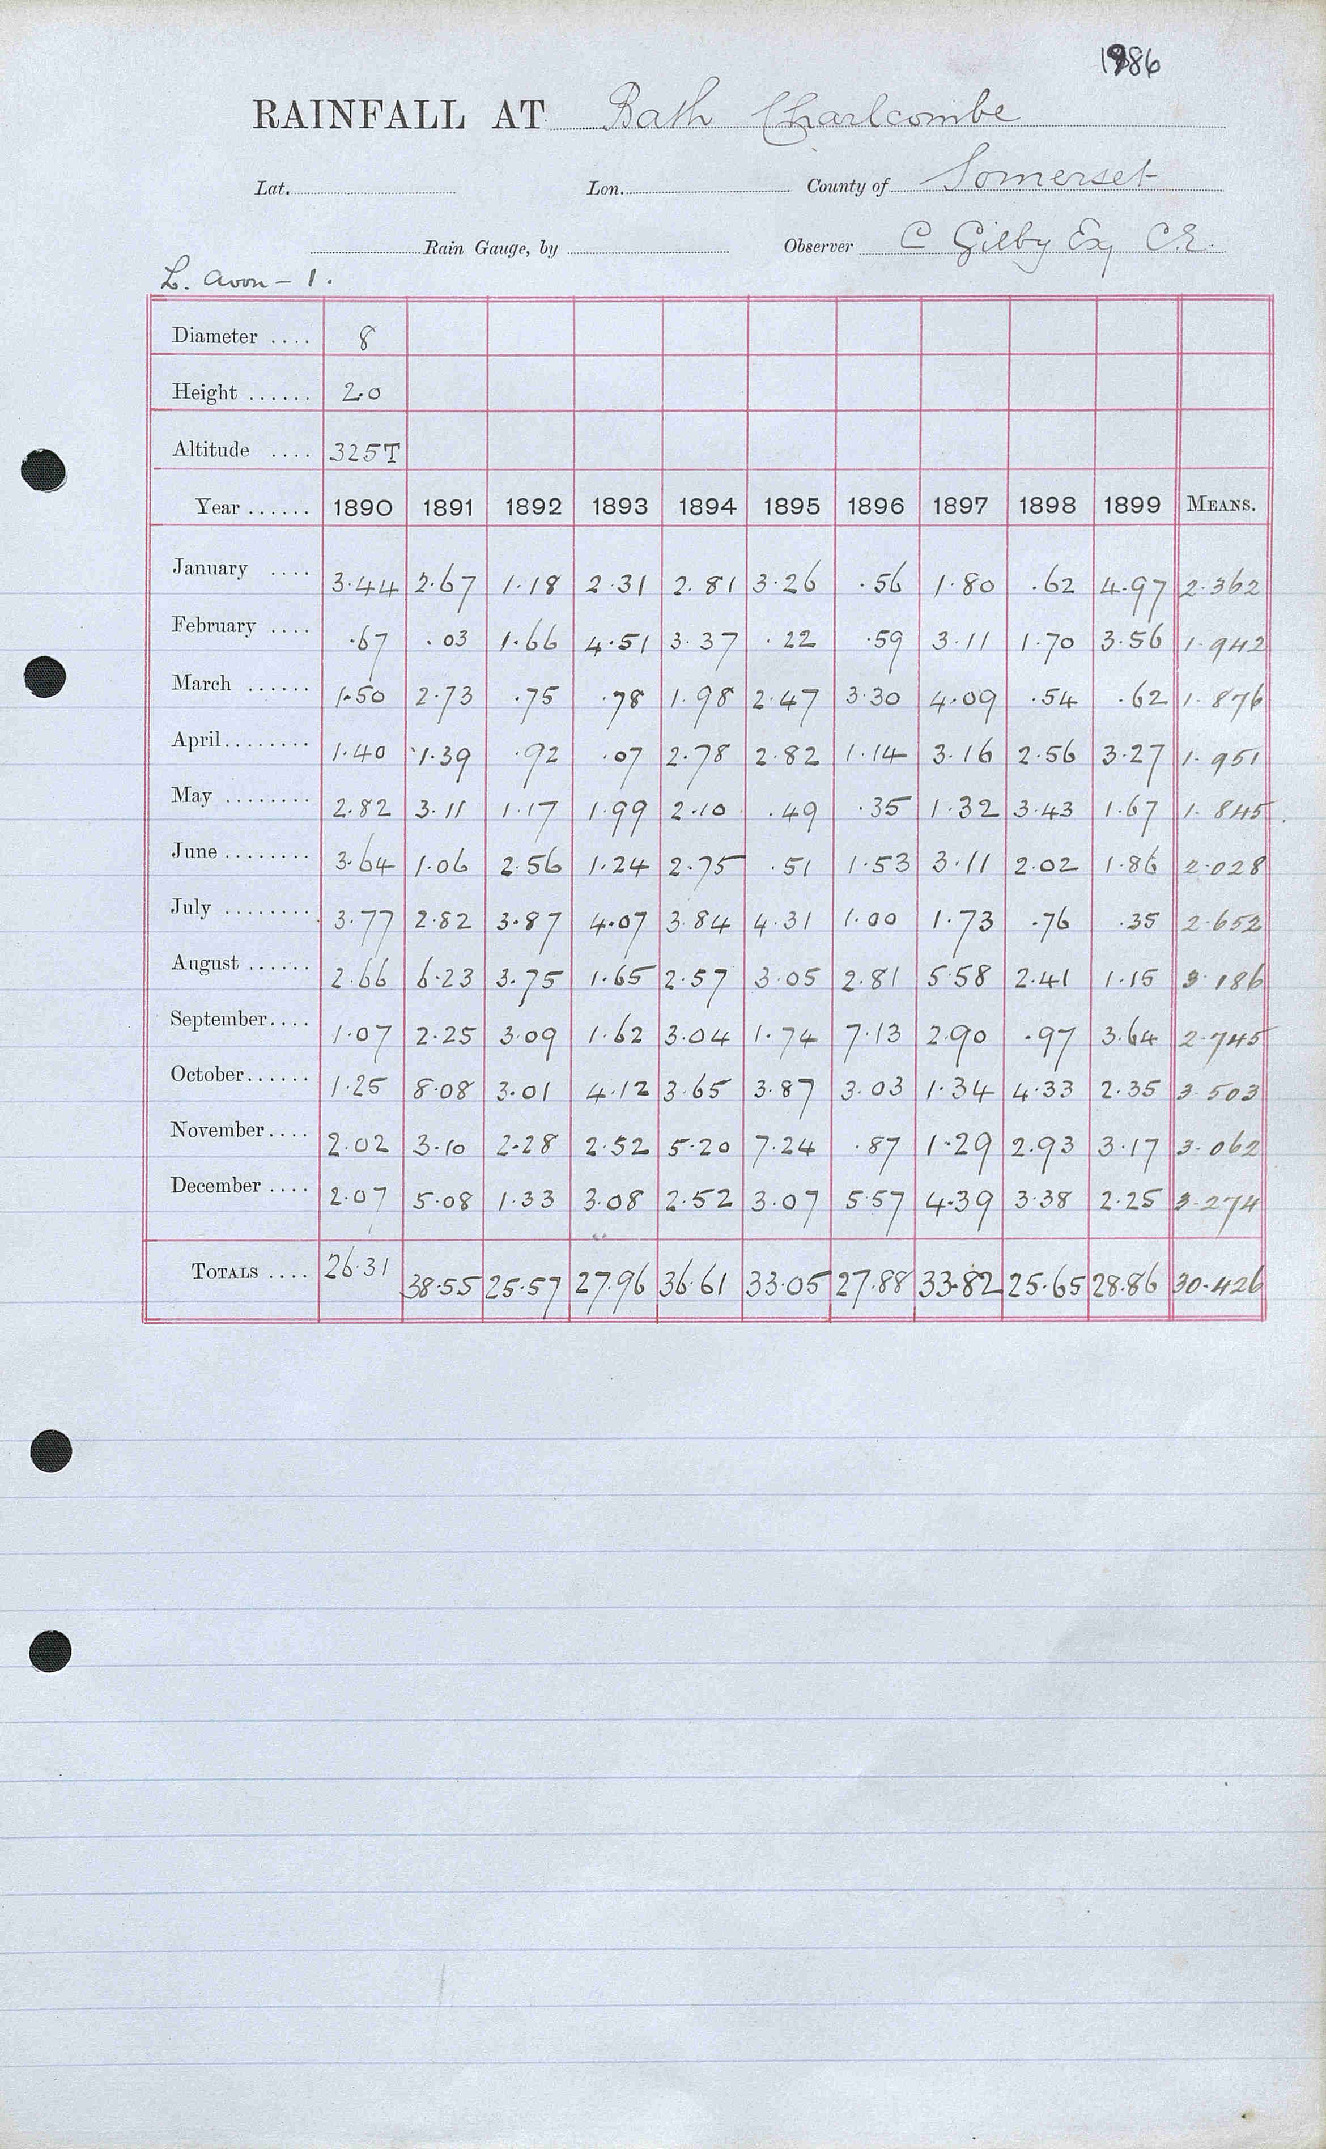 1986
RAINFALL AT Bath Charlcombe
Lat. Lon. County of Somerset
Rain Gauge, by Observer C Gilby Esq C.E.
L. Avon - 1.
Diameter .... 8
Height ...... 2.0
Altitude .... 325T
Year ...... 1890 1891 1892 1893 1894 1895 1896 1897 1898 1899 MEANS.
January .... 3.44 2.67 1.18 2.31 2.81 3.26 .56 1.80 .62 4.97 2.362
February .... .67 .03 1.66 4.51 3.37 .22 .59 3.11 1.70 3.56 1.942
March ...... 1.50 2.73 .75 .78 1.98 2.47 3.30 4.09 .54 .62 1.876
April........ 1.40 1.39 .92 .07 2.78 2.82 1.14 3.16 2.56 3.27 1.951
May ........ 2.82 3.11 1.17 1.99 2.10 .49 .35 1.32 3.43 1.67 1.845
June ........ 3.64 1.06 2.56 1.24 2.75 .51 1.53 3.11 2.02 1.86 2.028
July ........ 3.77 2.82 3.87 4.07 3.84 4.31 1.00 1.73 .76 .35 2.652
August ...... 2.66 6.23 3.75 1.65 2.57 3.05 2.81 5.58 2.41 1.15 3.186
September.... 1.07 2.25 3.09 1.62 3.04 1.74 7.13 2.90 .97 3.64 2.745
October...... 1.25 8.08 3.01 4.12 3.65 3.87 3.03 1.34 4.33 2.35 3.503
November.... 2.02 3.10 2.28 2.52 5.20 7.24 .87 1.29 2.93 3.17 3.062
December .... 2.07 5.08 1.33 3.08 2.52 3.07 5.57 4.39 3.38 2.25 3.274
TOTALS .... 26.31 38.55 25.57 27.96 36.61 33.05 27.88 33.82 25.65 28.86 30.426